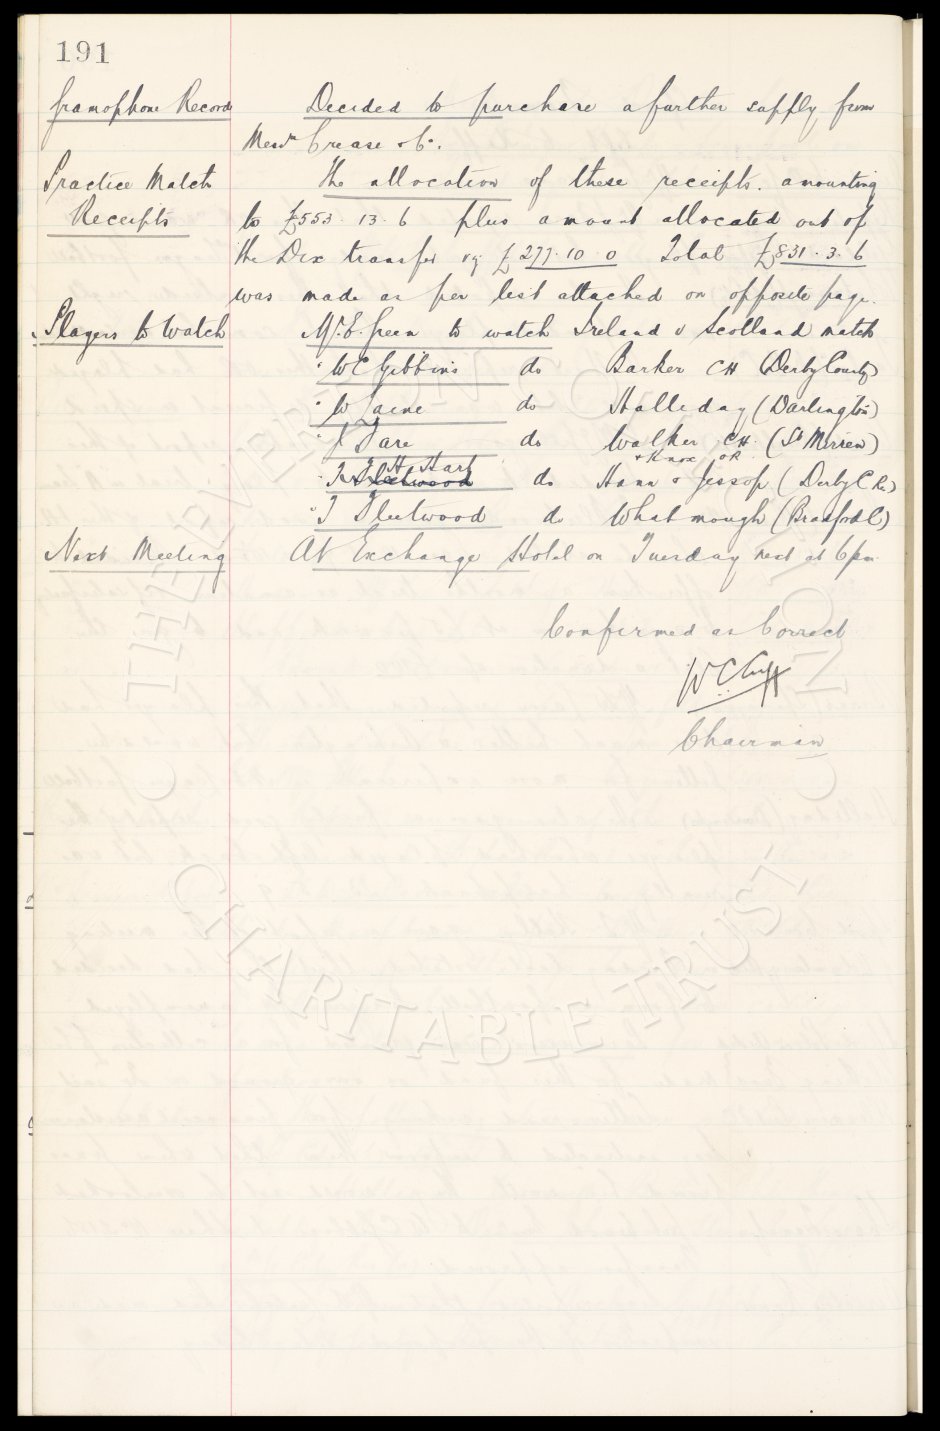 191
Gramophone Records Decided to purchase a further supply from
Messrs Crease & Co.
Practice Match The allocation of these receipts. amounting
Receipts to £553. 13. 6 plus amount allocated out of
the Dix transfer vy £277. 10. 0 Total £831. 3. 6
was made as per list attached on opposite page.
Players to Watch Mr. E. Green to watch Ireland v Scotland match
" W C Gibbins do Barker CH (Derby County)
" W Laine do Halliday (Darlington)
" J Fare do Walker CH. (St Mirren)
" T H Hart do Hann & Jessop (Derby C Res)
+ Knox OR
" T Fleetwood do Whatmough (Bradford C)
Next Meeting At Exchange Hotel on Tuesday next at 6pm
Confirmed as Correct
W C Cuff
Chairman
THE EVERTON COLLECTION
CHARITABLE TRUST